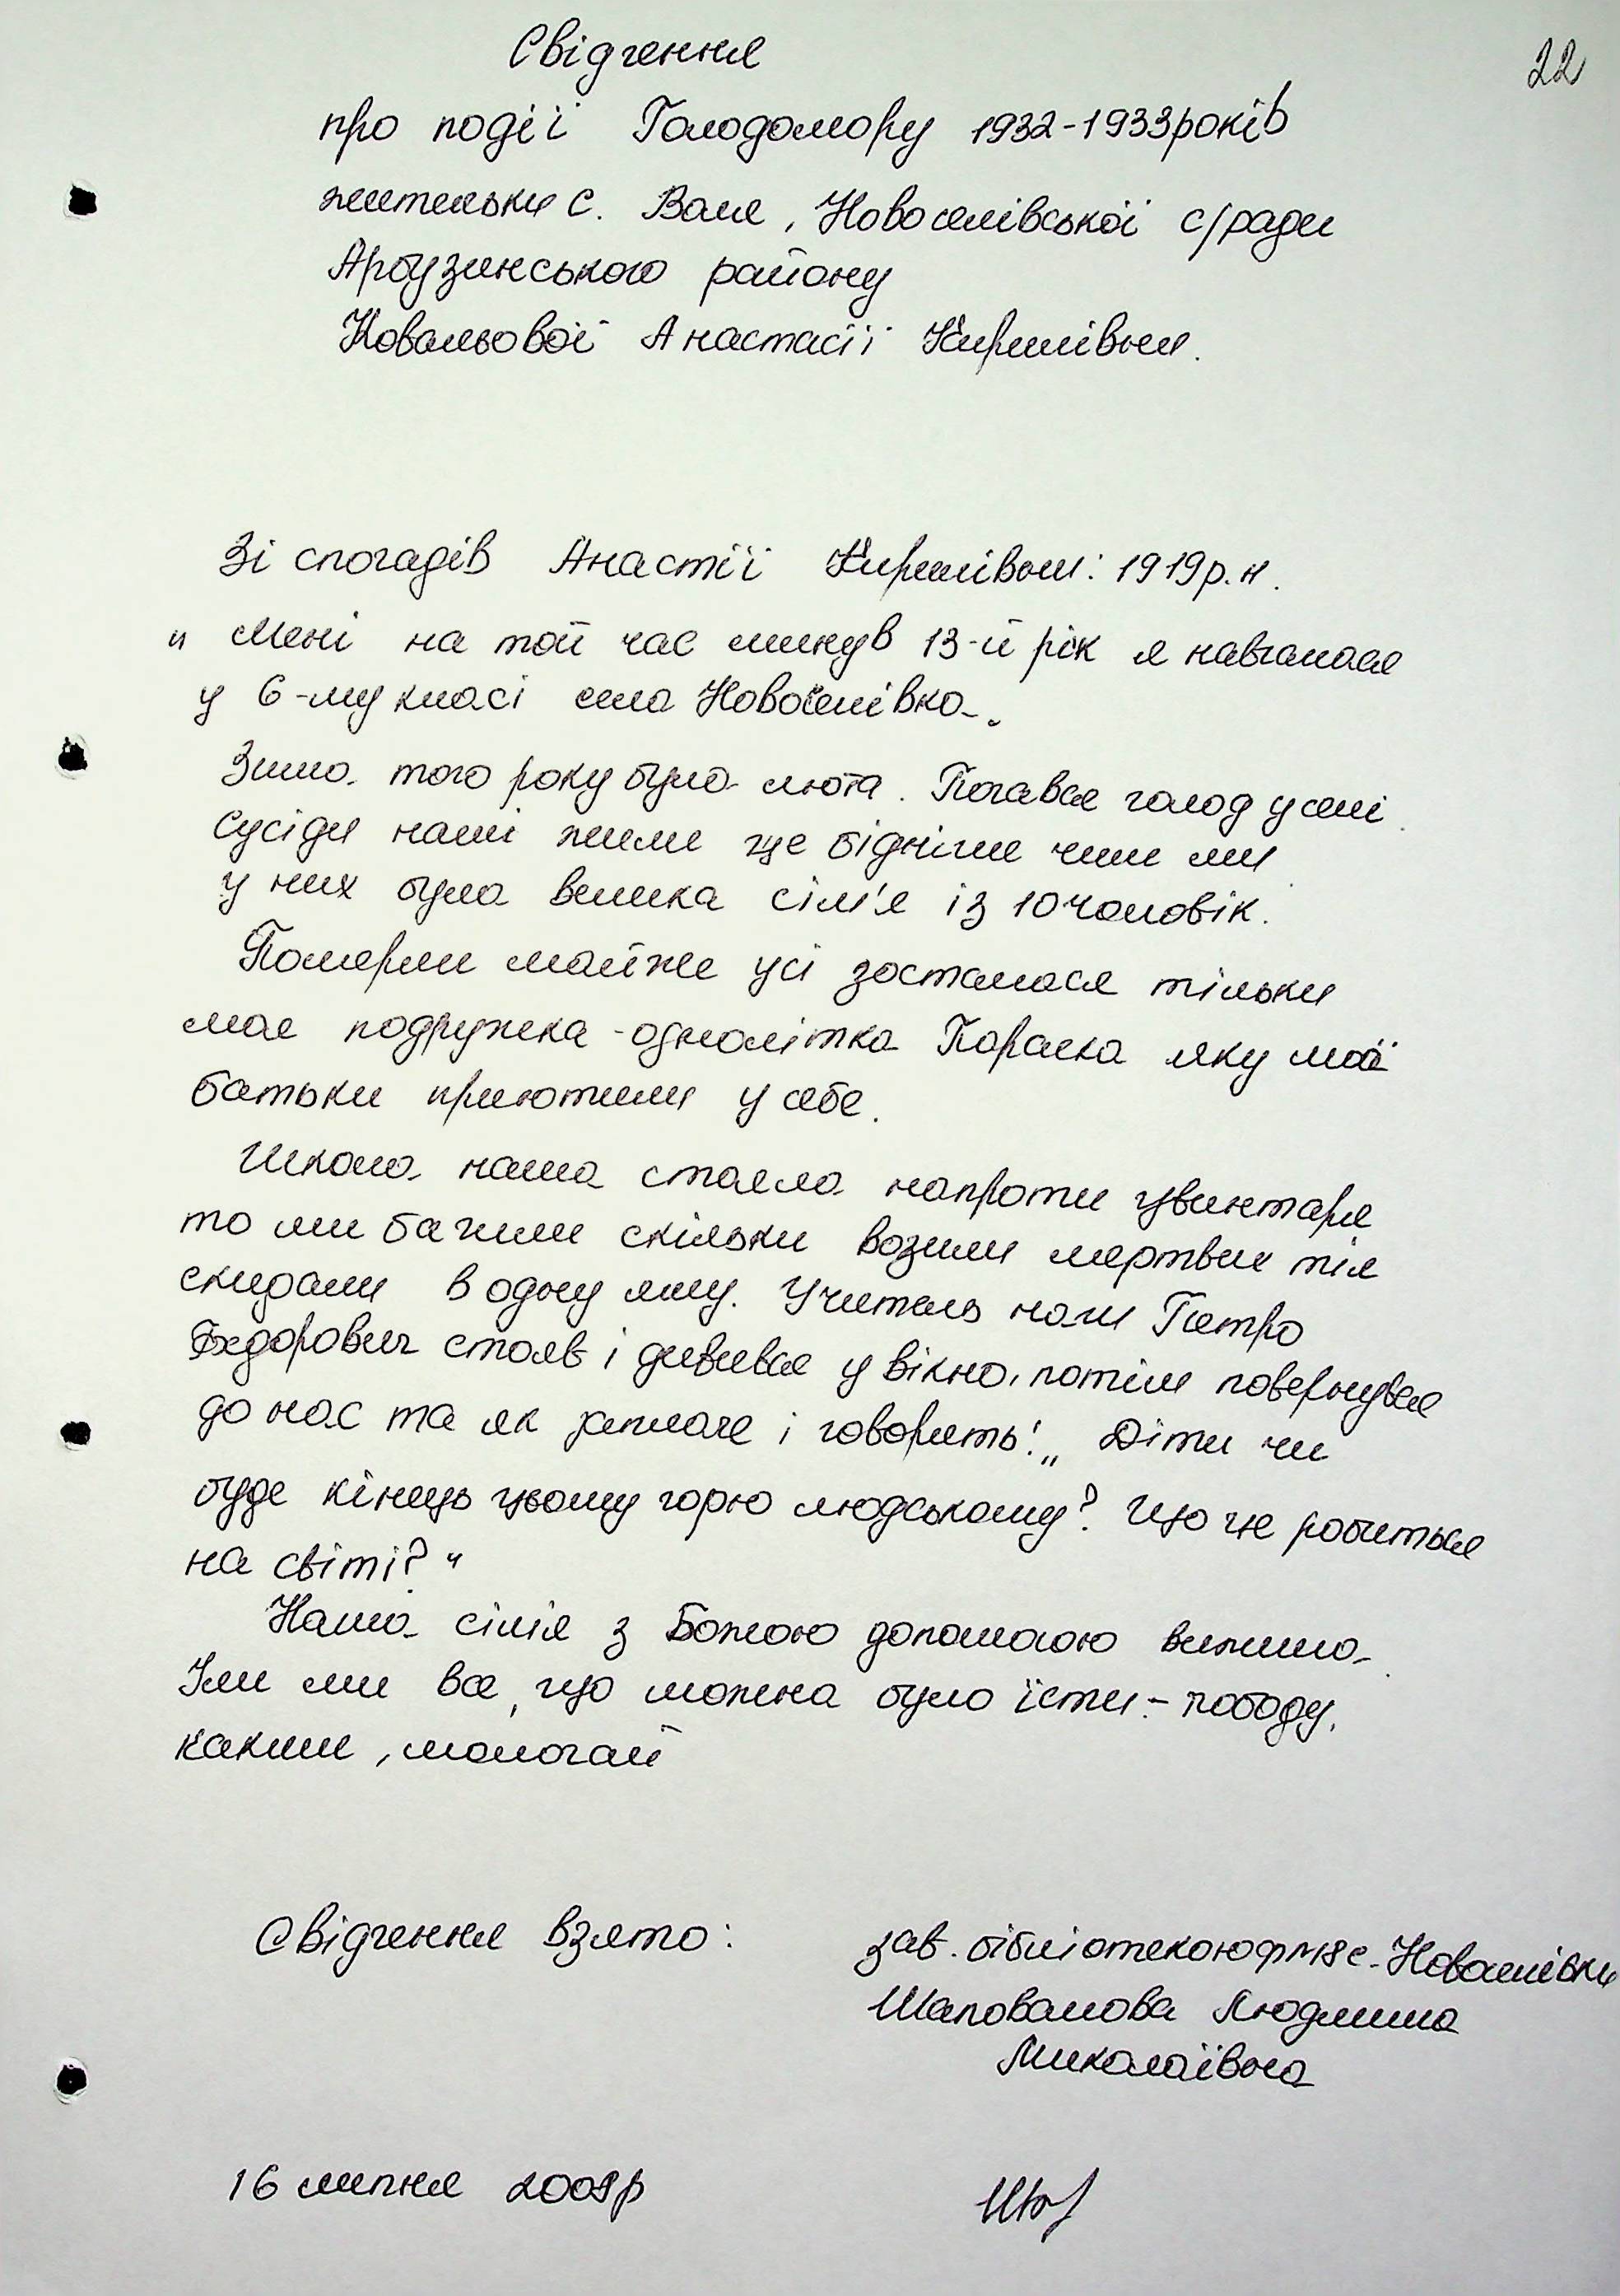 22
Свідчення
про події Голодомору 1932-1933років
жительки с. Воля, Новоселівської с/ради
Арбузинського району
Ковальової Анастасії Кирилівни.
Зі спогадів Анастії Кирилівни: 1919р.н.
" Мені на той час минув 13-й рік я навчалася
у 6-му класі села Новоселівка.
Зима того року була люта. Почався голод у селі.
Сусіди наші жили ще бідніше чим ми
у них була велика сім'я із 10 чоловік.
Померли майже усі зосталася тільки
моя подружка - однолітка Параска яку мої
батьки приютили у себе.
Школа наша стояла напроти цвинтаря
то ми бачили скільки возили мертвих тіл
скидали в одну яму. Учитель наш Петро
Федорович стояв і дивився у вікно, потім повернувся
до нас та як заплаче і говорить! „ Діти чи
буде кінець цьому горю людському? Що це робиться
на світі? "
Наша сім'я з Божою допомогою вижила.
Їли ми все, що можна було їсти - лободу,
качики, молочай
Свідчення взято:
зав. бібліотекою ф №18 с. Новоселівки
Шаповалова Людмила
Миколаївна
16 липня 2008р